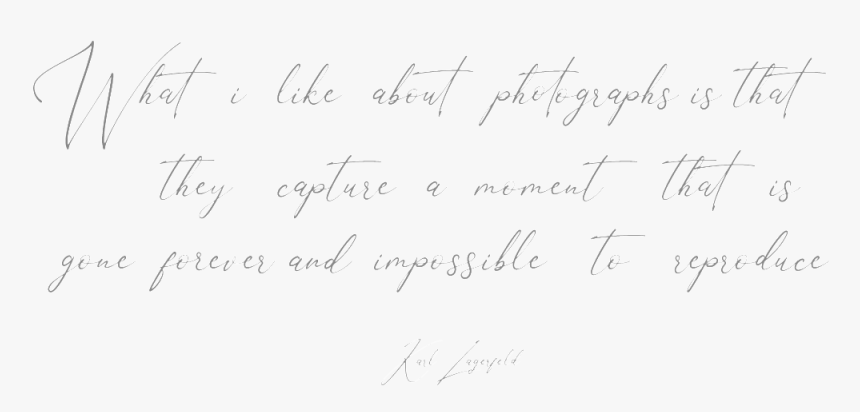 What i like about photographs is that
they capture a moment that is
gone forever and impossible to reproduce
Karl Lagerfeld